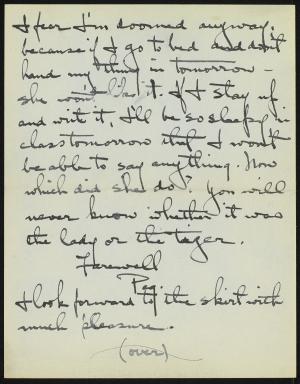 I fear I'm doomed anyway,
because if I go to bed and don't
hand my "thing in tomorrow –
she won't like it. If I stay up
and write it, I'll be so sleepy in
class tomorrow that I won't
be able to say anything. Now
which did she do? You will
never know whether it was
the lady or the tiger.
Farewell
Peg
I look forward to the skirt with
much pleasure.
(over)